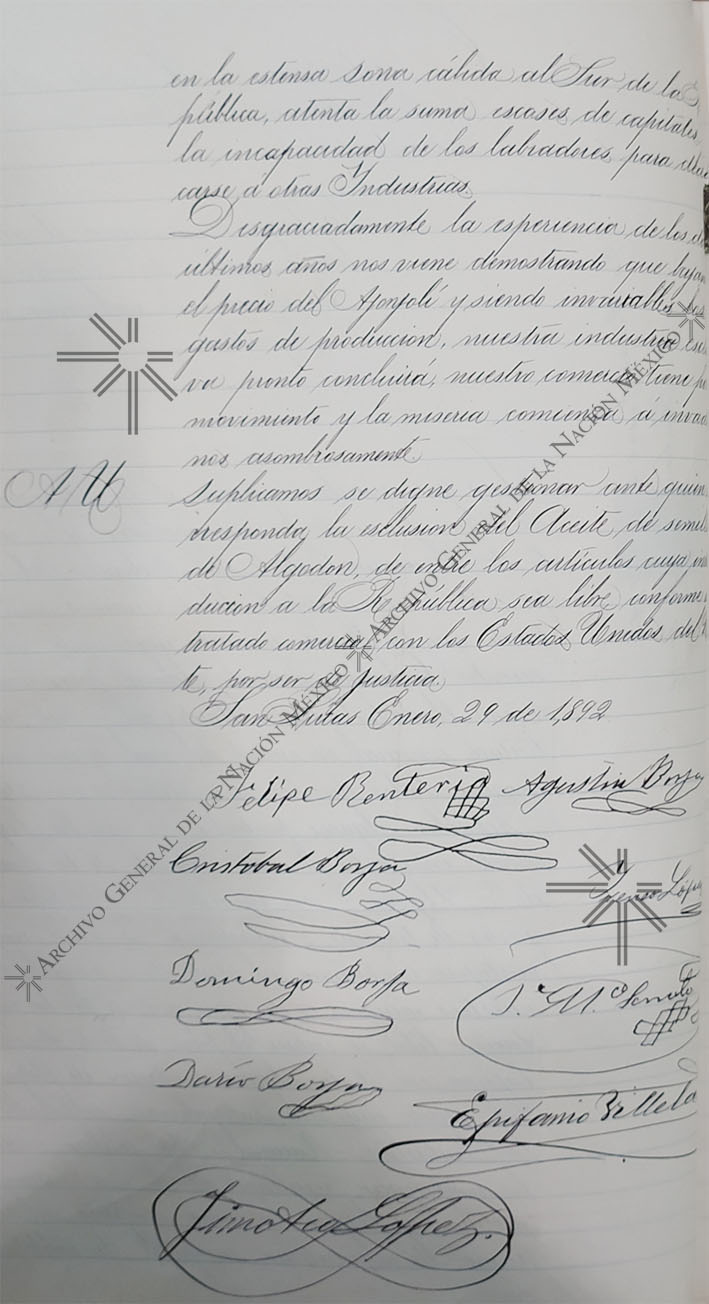 en la estensa Sona cálida al Sur de la
pública, atenta la suma escases de capitales
la incapacidad de los labradores para
carse á otras Industrias.
Disgraciadamente la esperiencia de los
últimos años nos viene demostrando que
el precio del Ajonjolí y siendo invariables los
gastos de produccion, nuestra industria
va pronto concluirá, nuestro comercio tiene
movimiento y la miseria comienza á
nos asombrosamente
A U
Suplicamos se digne gestionar ante quien
rresponda, la esclusion del Aceite de
de Algodon, de entre los artículos cuya
duccion a la República sea libre conforme
tratado comercial con los Estados Unidos del
te, por ser de justicia.
San Lucas Enero, 29 de 1,892
Felipe Renteria Agustin Borja
Cristobal Borja
López
Domingo Borja
J. M.
Darío Borja
Epifanio Villela
Timoteo López.
ARCHIVO GENERAL DE LA NACIÓN MÉXICO
ARCHIVO GENERAL DE LA NACIÓN MÉXICO